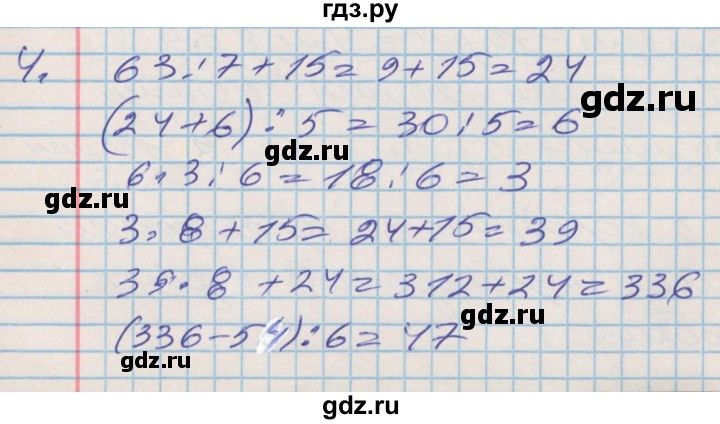 гдз.ру
4. 63 : 7 + 15 = 9 + 15 = 24
gdz.ru
(24 + 6) : 5 = 30 : 5 = 6
gdz.ru
6 · 3 : 6 = 18 : 6 = 3
gdz.ru
gdz.ru
3 · 8 + 15 = 24 + 15 = 39
39 · 8 + 24 = 312 + 24 = 336
gdz.ru
(336 - 54) : 6 = 47
gdz.ru
gdz.ru
gdz.ru